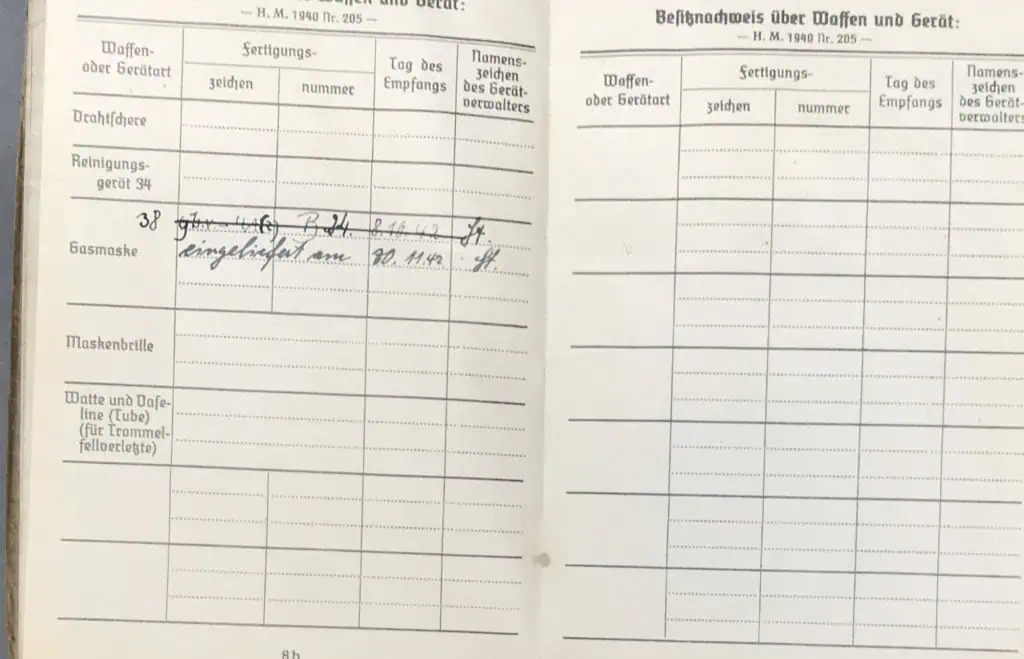 Waffen und Gerät:
— H. M. 1940 Nr. 205 —
Waffen-
oder Gerätart
Fertigungs-
zeichen
nummer
Tag des
Empfangs
Namens-
zeichen
des Gerät-
verwalters
Drahtschere
Reinigungs-
gerät 34
38
Gasmaske
B 24. 8.10.42 St.
eingeliefert am 20. 11. 42 St.
Maskenbrille
Watte und Vase-
line (Tube)
(für Trommel-
fellverletzte)
8b
Besitznachweis über Waffen und Gerät:
— H. M. 1940 Nr. 205 —
Waffen-
oder Gerätart
Fertigungs-
zeichen
nummer
Tag des
Empfangs
Namens-
zeichen
des Gerät-
verwalters